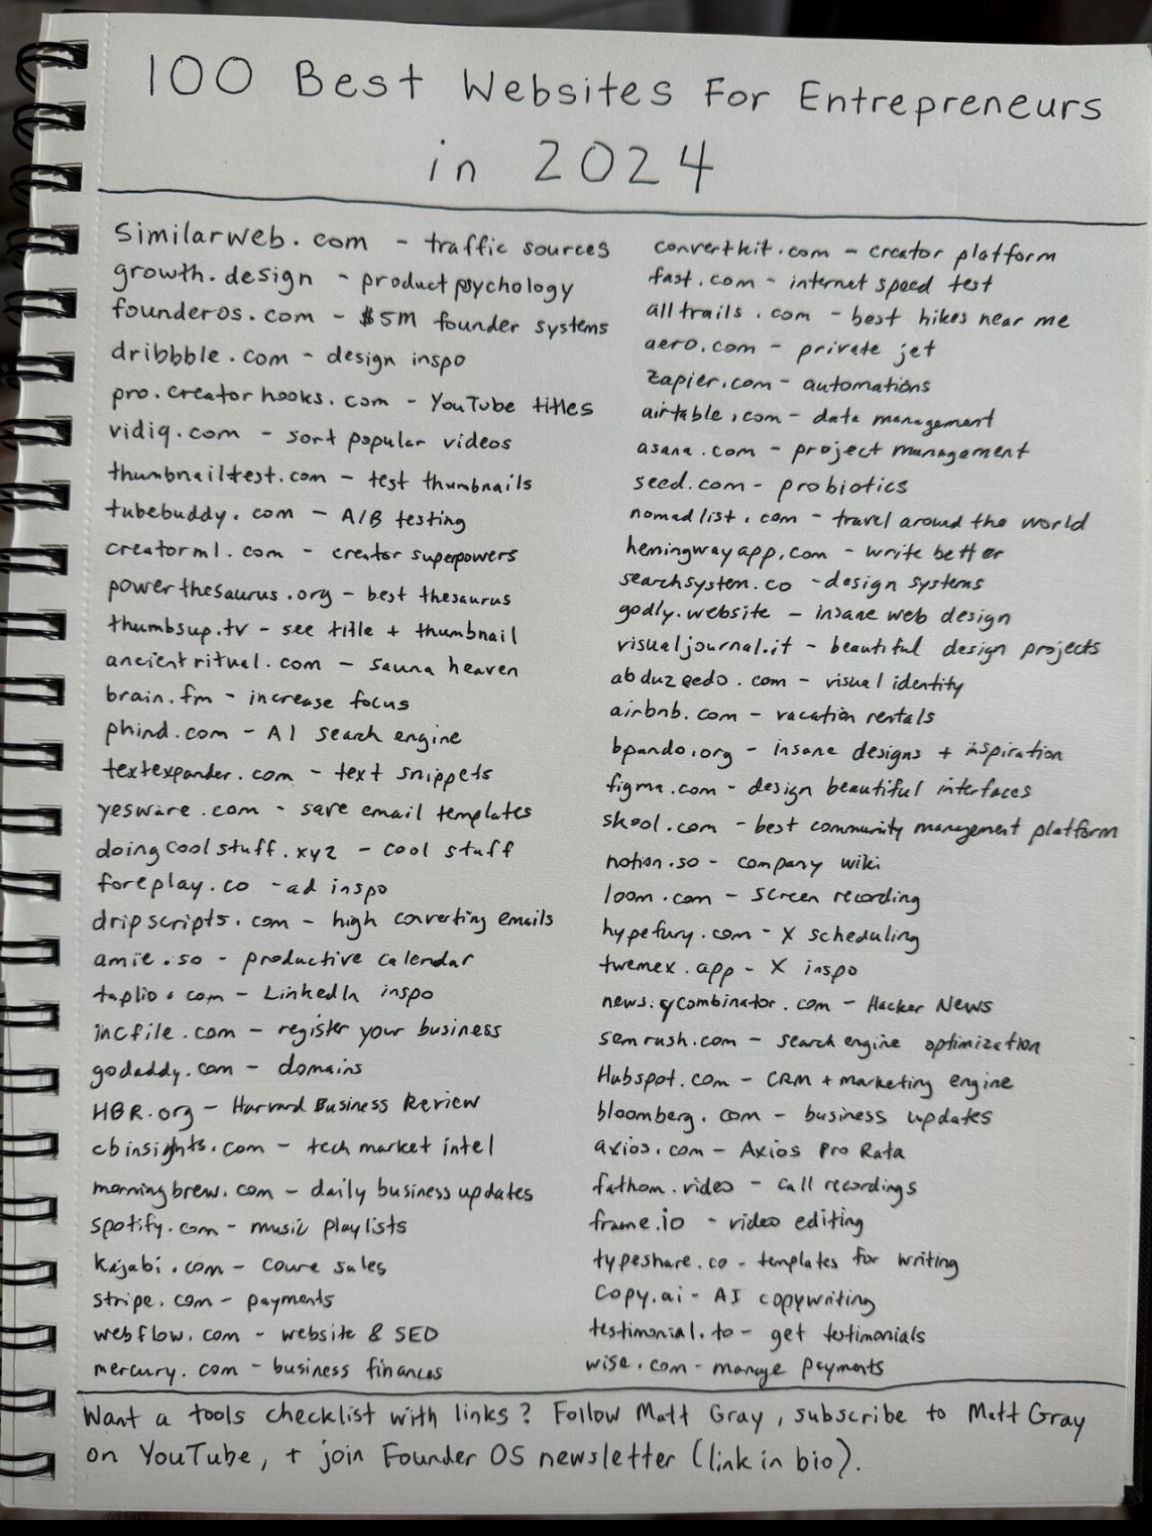 100 Best Websites For Entrepreneurs
in 2024
Similarweb.com - traffic sources
growth.design - product psychology
founderos.com - $5M founder systems
dribbble.com - design inspo
pro.creatorhooks.com - YouTube titles
vidiq.com - sort popular videos
thumbnailtest.com - test thumbnails
tubebuddy.com - A/B testing
creatorml.com - creator superpowers
powerthesaurus.org - best thesaurus
thumbsup.tv - see title + thumbnail
ancientritual.com - sauna heaven
brain.fm - increase focus
phind.com - AI search engine
textexpander.com - text snippets
yesware.com - save email templates
doingcoolstuff.xyz - cool stuff
foreplay.co - ad inspo
dripscripts.com - high converting emails
amie.so - productive calendar
taplio.com - LinkedIn inspo
incfile.com - register your business
godaddy.com - domains
HBR.org - Harvard Business Review
cbinsights.com - tech market intel
morningbrew.com - daily business updates
spotify.com - music playlists
kajabi.com - course sales
stripe.com - payments
webflow.com - website & SEO
mercury.com - business finances
convertkit.com - creator platform
fast.com - internet speed test
alltrails.com - best hikes near me
aero.com - private jet
zapier.com - automations
airtable.com - data management
asana.com - project management
seed.com - probiotics
nomadlist.com - travel around the world
hemingwayapp.com - write better
searchsystem.co - design systems
godly.website - insane web design
visualjournal.it - beautiful design projects
abduzeedo.com - visual identity
airbnb.com - vacation rentals
bpando.org - insane designs + inspiration
figma.com - design beautiful interfaces
skool.com - best community management platform
notion.so - company wiki
loom.com - screen recording
hypefury.com - X scheduling
twemex.app - X inspo
news.ycombinator.com - Hacker News
semrush.com - search engine optimization
Hubspot.com - CRM + marketing engine
bloomberg.com - business updates
axios.com - Axios Pro Rata
fathom.video - call recordings
frame.io - video editing
typeshare.co - templates for writing
Copy.ai - AI copywriting
testimonial.to - get testimonials
wise.com - manage payments
Want a tools checklist with links? Follow Matt Gray, subscribe to Matt Gray
on YouTube, + join Founder OS newsletter (link in bio).